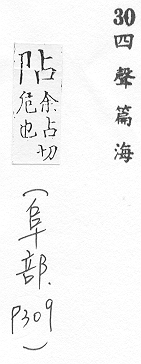 30四聲篇海
阽余占切
危也
(阜部.
P309)